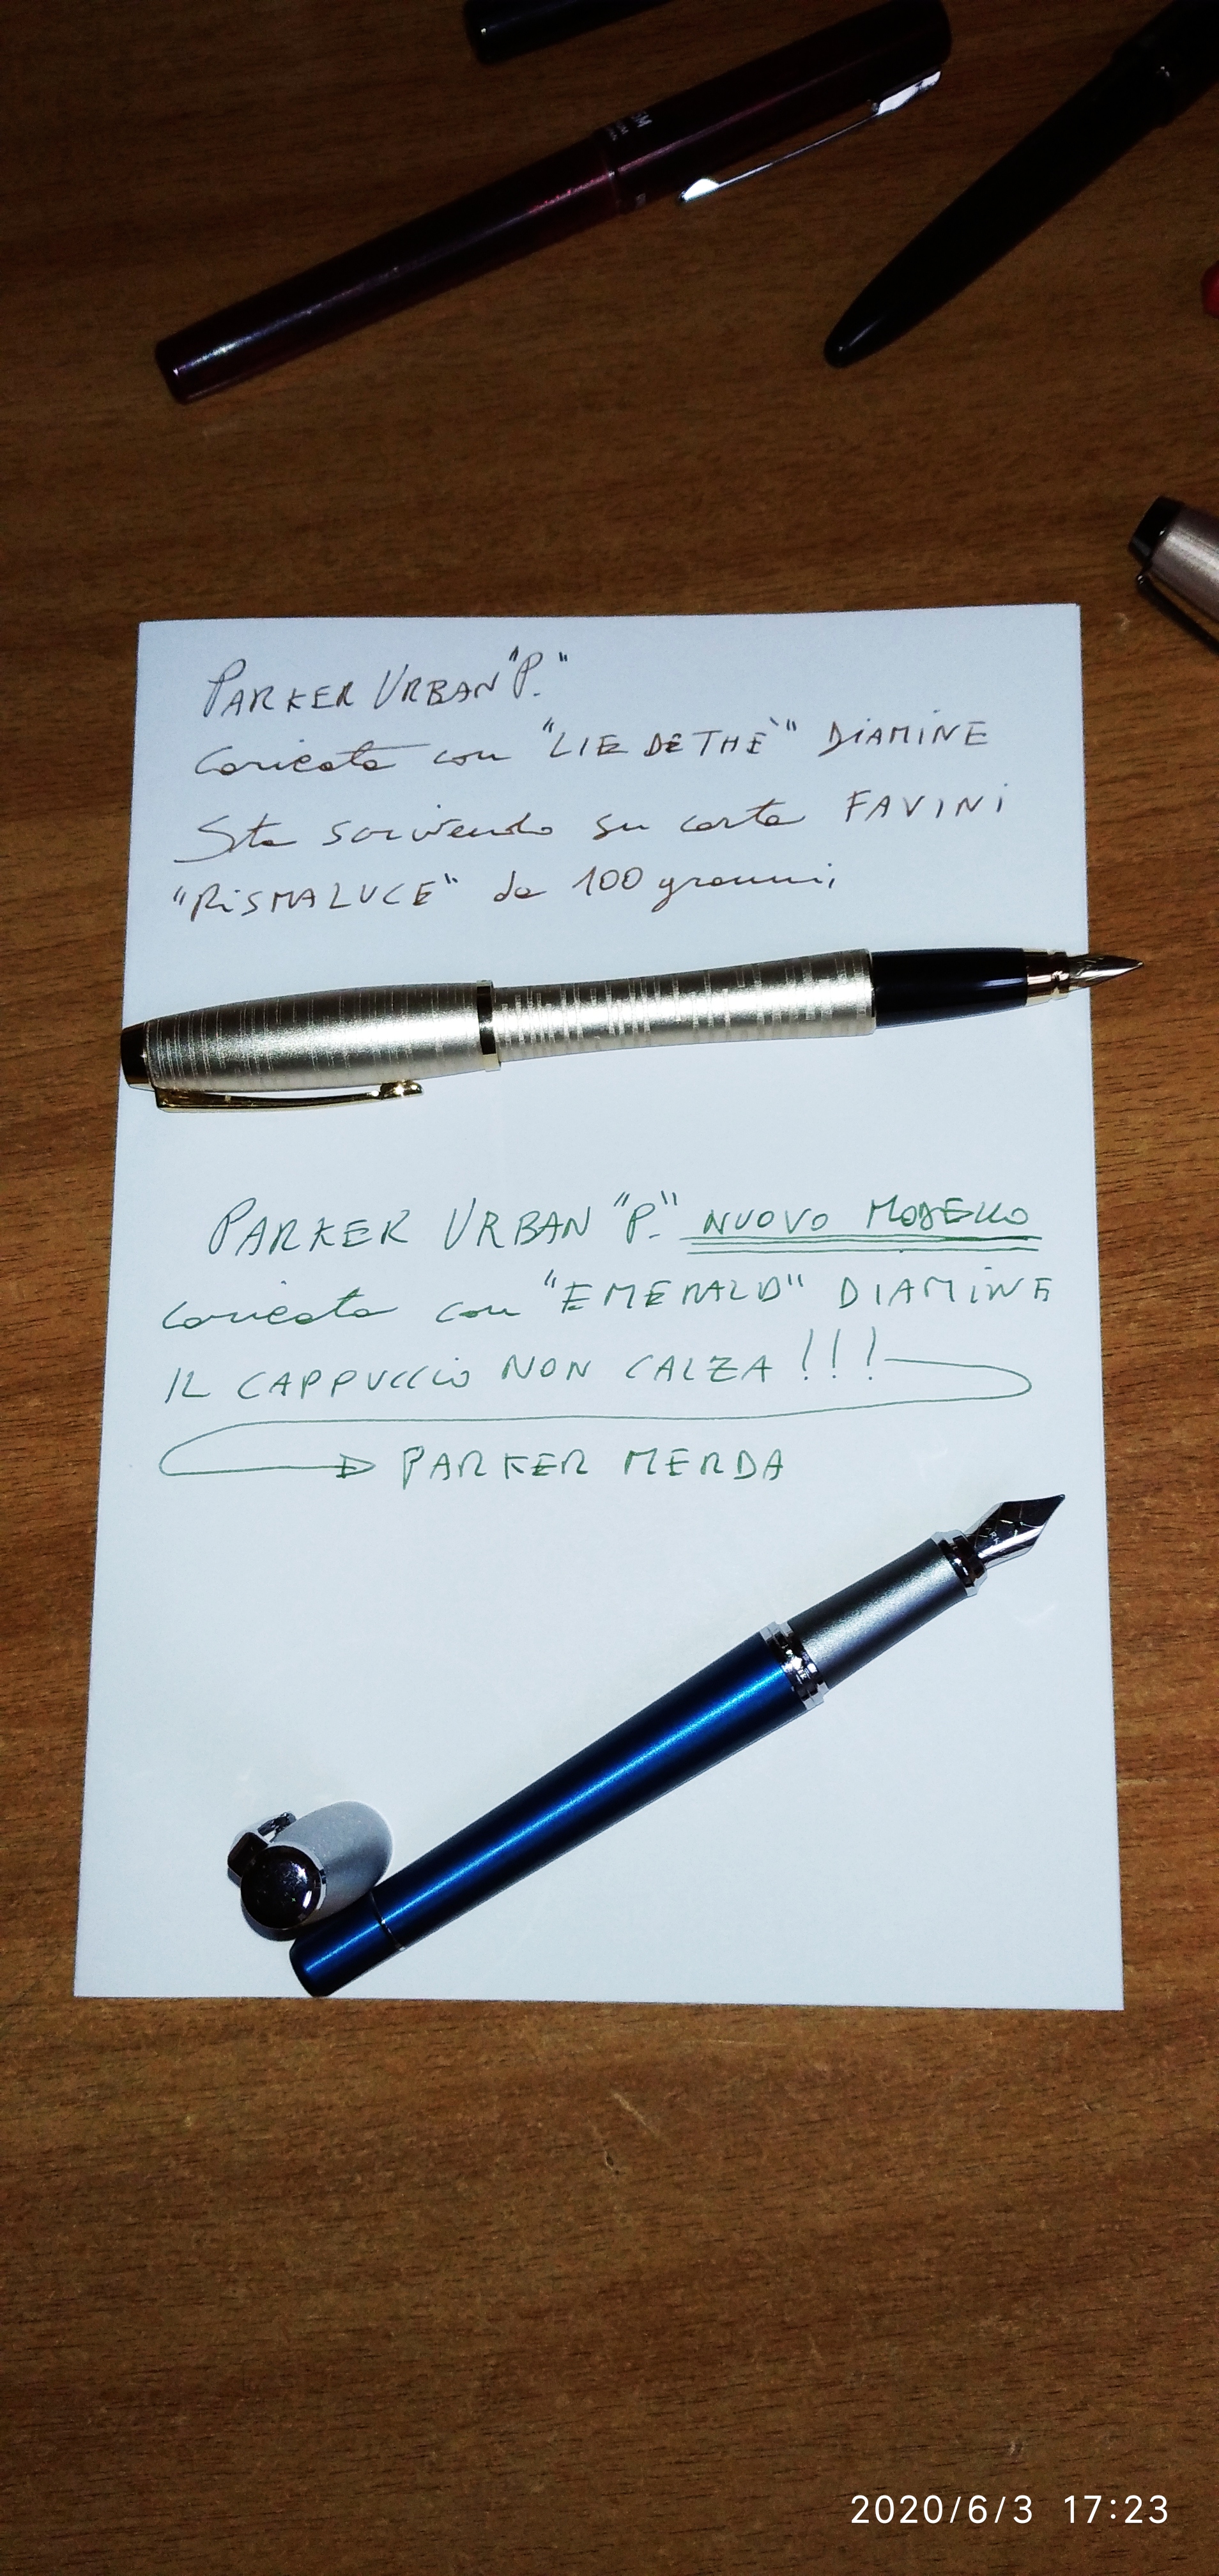 PARKER URBAN "P."
Caricata con "LIE DE THÈ" DIAMINE
Sta scrivendo su carta FAVINI
"RISMALUCE" da 100 grammi,
PARKER URBAN "P." NUOVO MODELLO
Caricata con "EMERALD" DIAMINE
IL CAPPUCCIO NON CALZA !!!
PARKER MERDA
2020/6/3 17:23